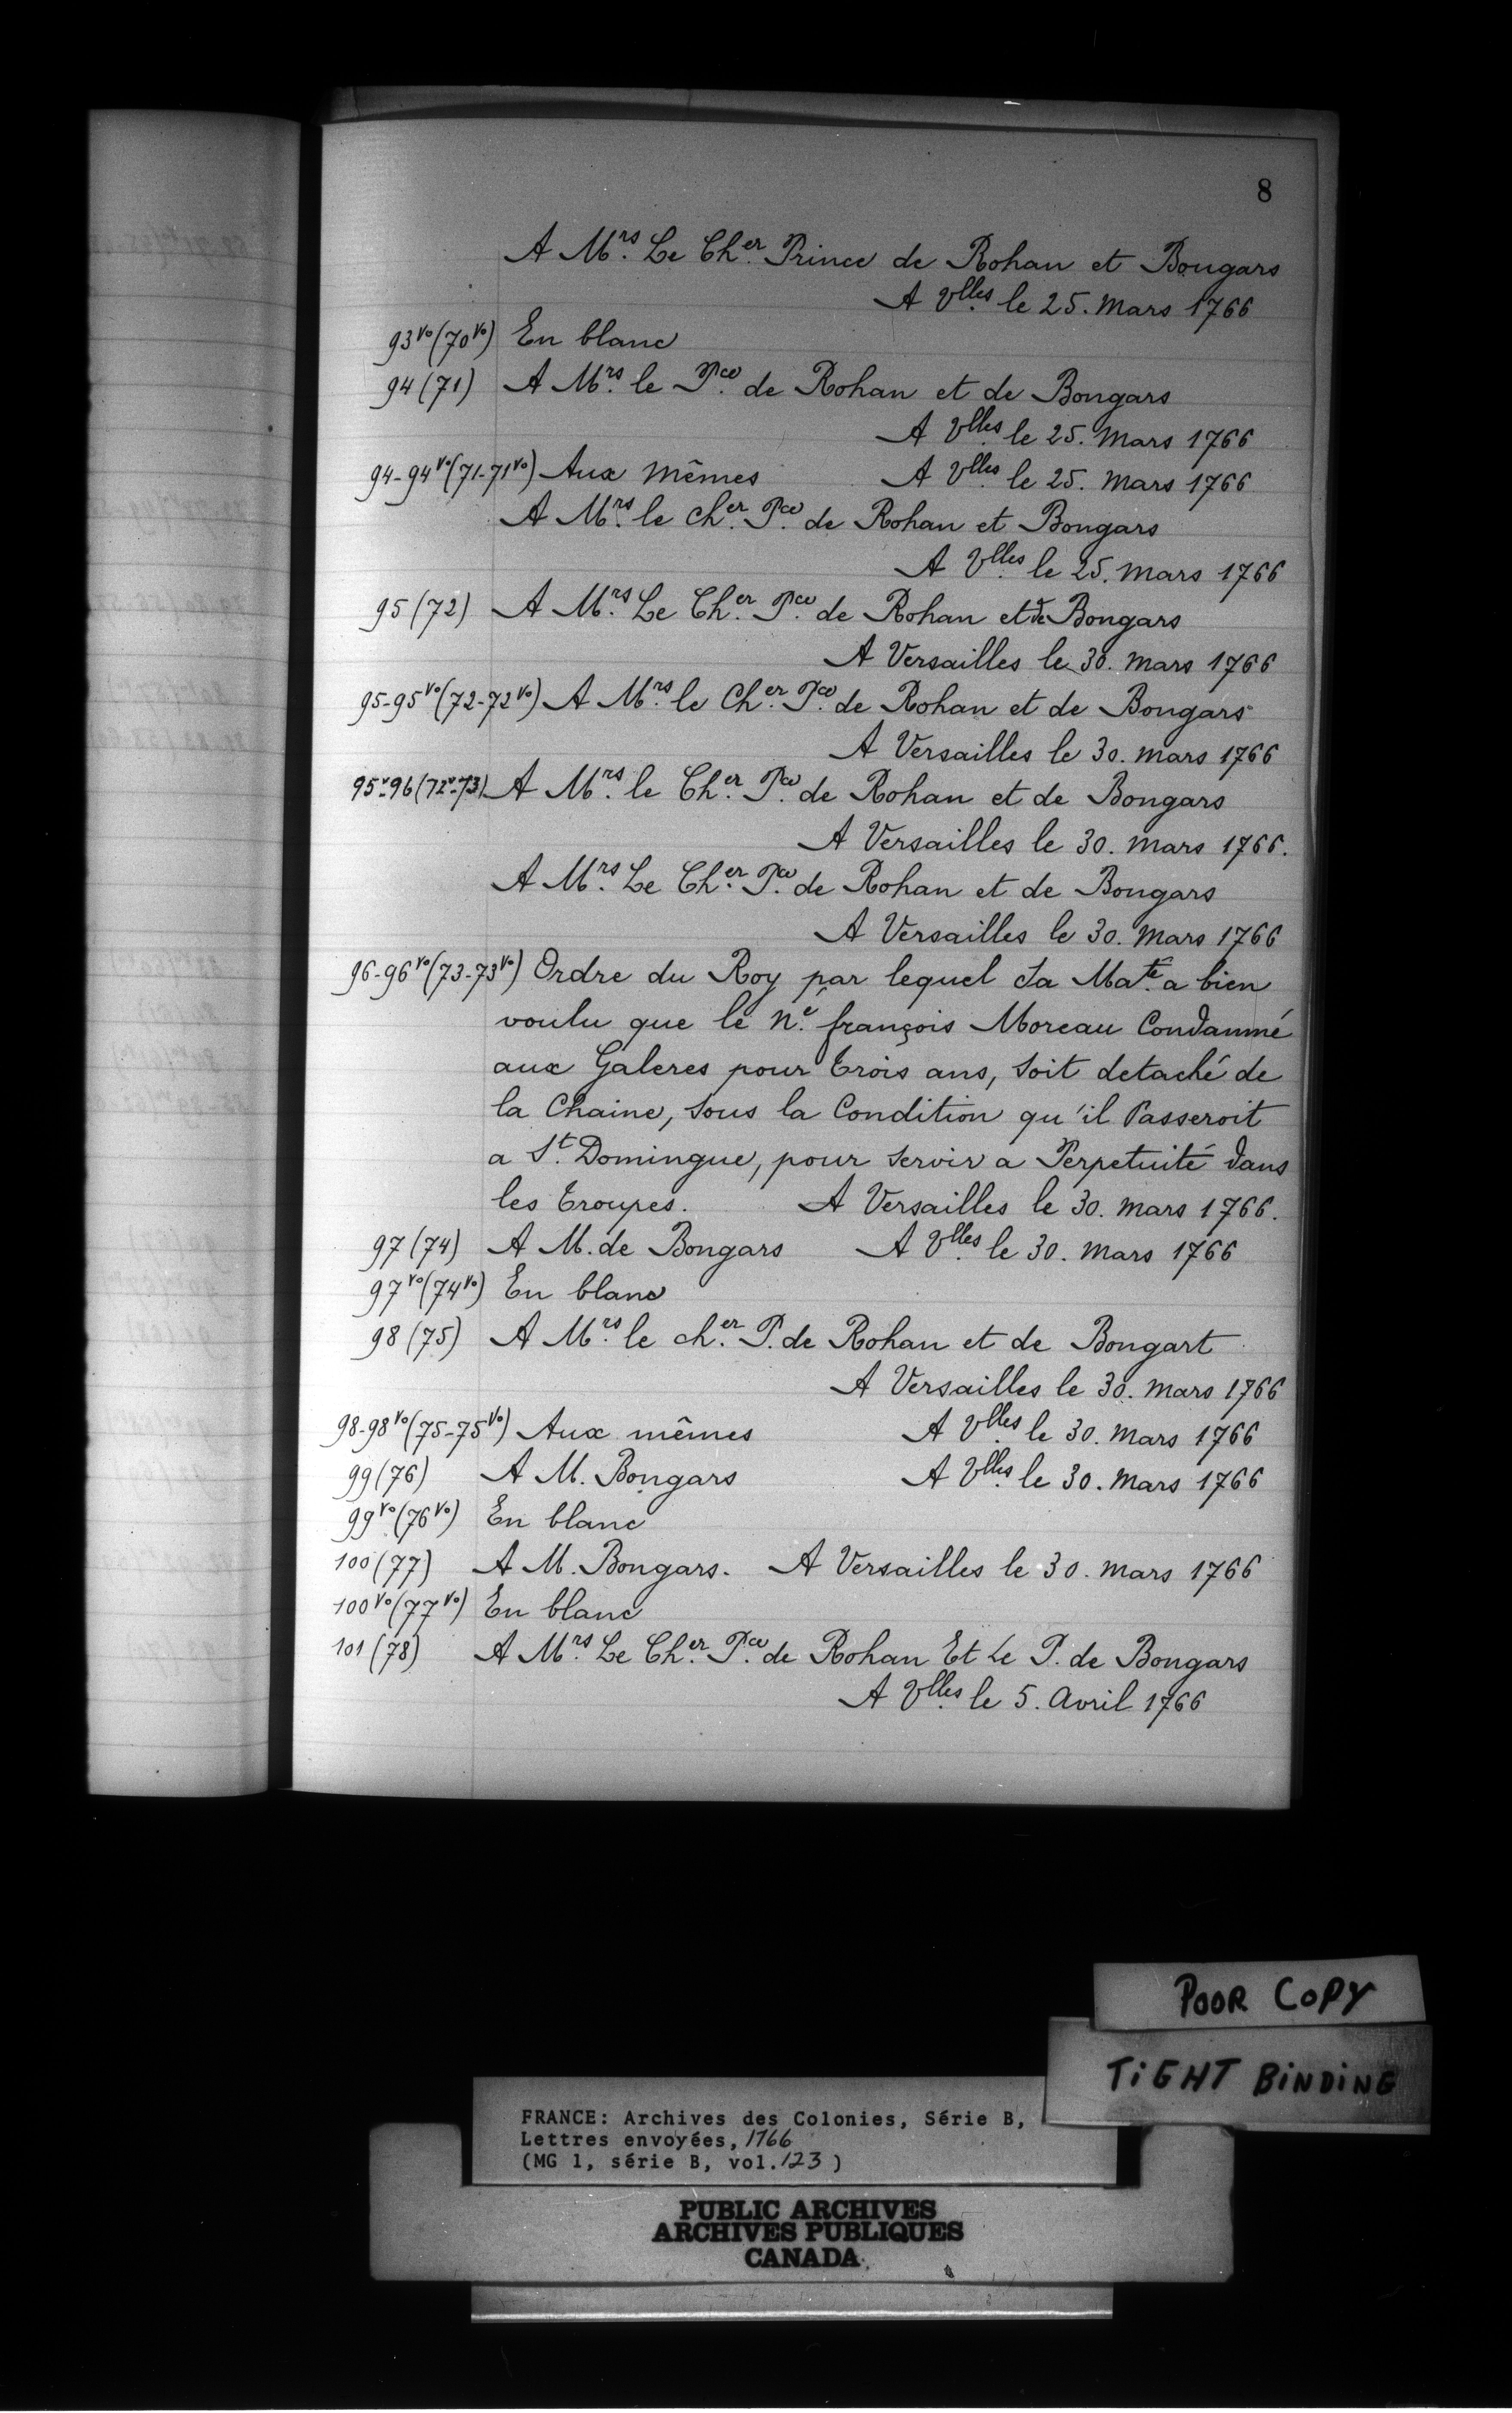 8
A Mrs. Le Cher. Prince de Rohan et Bougars
A Vlles. le 25. Mars 1766
93vo(70vo) En blanc
94 (71) A Mrs. le Pce. de Rohan et de Bongars
A Vlles. le 25. Mars 1766
94-94vo(71-71vo) Aux Mêmes A Vlles. le 25. Mars 1766
A Mrs. le cher. Pce. de Rohan et Bongars
A Vlles. le 25. Mars 1766
95 (72) A Mrs. Le Cher. Pce. de Rohan et de Bongars
A Versailles le 30. Mars 1766
95-95vo(72-72vo) A Mrs. le Cher. Pce. de Rohan et de Bongars
A Versailles le 30. Mars 1766
95v-96(72v-73) A Mrs. le Cher. Pce. de Rohan et de Bongars
A Versailles le 30. Mars 1766.
A Mrs. Le Cher. Pce. de Rohan et de Bongars
A Versailles le 30. Mars 1766
96-96vo(73-73vo) Ordre du Roy par lequel Sa Maté. a bien
voulu que le Né. françois Moreau Condamné
aux Galeres pour trois ans, soit detaché de
la Chaine, sous la Condition qu'il Passeroit
a St. Domingue, pour servir a Perpetuité dans
les troupes. A Versailles le 30. Mars 1766.
97 (74) A M. de Bongars A Vlles. le 30. Mars 1766
97vo(74vo) En blanc
98 (75) A Mrs. le cher. P. de Rohan et de Bongart
A Versailles le 30. Mars 1766
98-98vo(75-75vo) Aux mêmes A Vlles. le 30. Mars 1766
99 (76) A M. Bongars A Vlles. le 30. Mars 1766
99vo(76vo) En blanc
100 (77) A M. Bongars. A Versailles le 30. Mars 1766
100vo(77vo) En blanc
101 (78) A Mrs. Le Cher. Pce. de Rohan Et Le P. de Bongars
A Vlles. le 5. Avril 1766
POOR COPY
TIGHT BINDING
FRANCE: Archives des Colonies, Série B,
Lettres envoyées, 1766
(MG 1, série B, vol. 123 )
PUBLIC ARCHIVES
ARCHIVES PUBLIQUES
CANADA